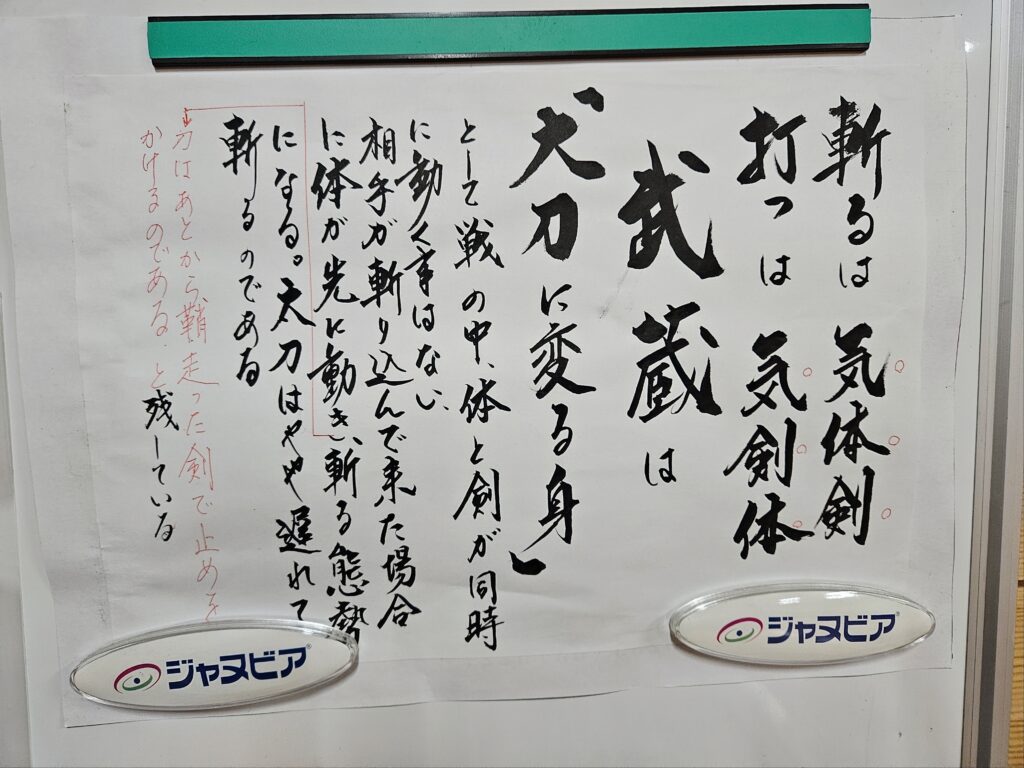 斬るは 気体剣
打つは 気剣体
武蔵は
「太刀に変る身」
として戦の中、体と剣が同時
に動く事はない、
相手が斬り込んで来た場合
に体が先に動き、斬る態勢
になる。太刀はやや遅れて
斬るのである
刀はあとから鞘走った剣で止めを
かけるのである、と残している
ジャヌビア®
ジャヌビア®